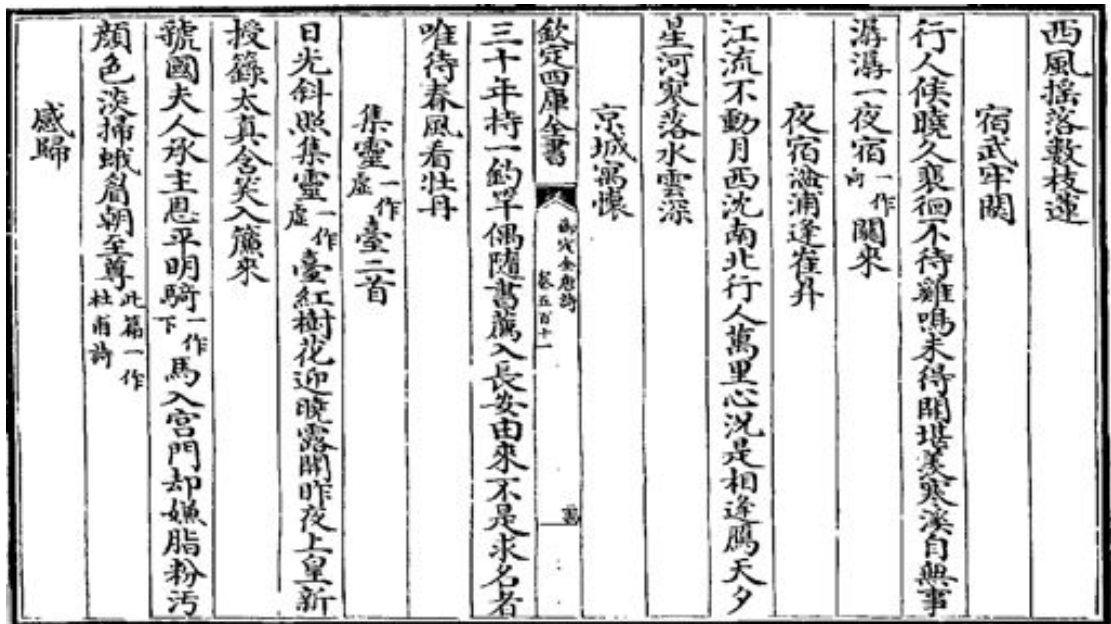 西風搖落數枝蓮
宿武牢關
行人候曉久裴徊不待雞鳴未得開堪羨寒溪自無事
潺潺一夜宿一作向關來
夜宿湓浦逢崔升
江流不動月西沈南北行人萬里心況是相逢鴈天夕
星河寒落水雲深
京城寓懷
欽定四庫全書 御定全唐詩 卷五百十一
三十年持一釣竿偶隨書薦入長安由來不是求名者
唯待春風看牡丹
集靈一作虛臺二首
日光斜照集靈一作虛臺紅樹花迎曉露開昨夜上皇新
授籙太真含笑入簾來
虢國夫人承主恩平明騎一作下馬入宮門却嫌脂粉汚
顏色淡掃蛾眉朝至尊此篇一作杜甫詩
感歸